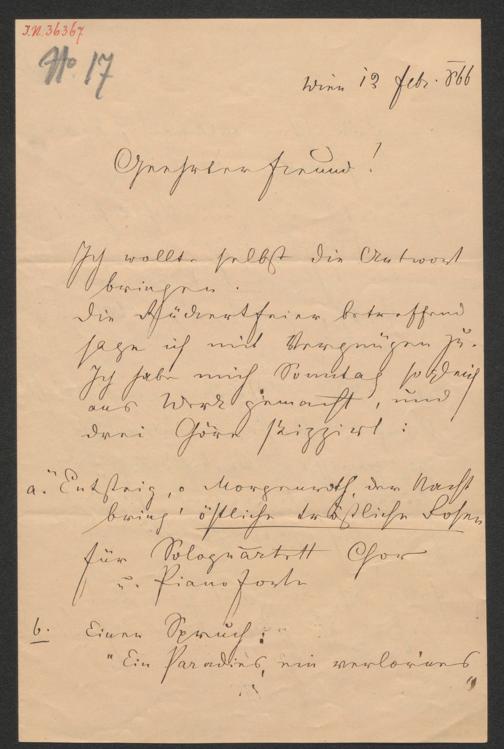 I.N. 36367
No 17
Wien 12 Febr. 866
Geehrter Freund!
Ich wollte selbst die Antwort
bringen.
Die Rückertfeier betreffend
sage ich mit Vergnügen zu.
Ich habe mich Sonntag sogleich
ans Werk gemacht, und
drei Göre skizzirt:
a. "Entsteig, o Morgenroth, der Nacht
bring' östliche tröstliche Rosen
für Soloquartett Chor
u. Piano Forte
b. Einen Spruch:
"Ein Paradies, ein verlornes